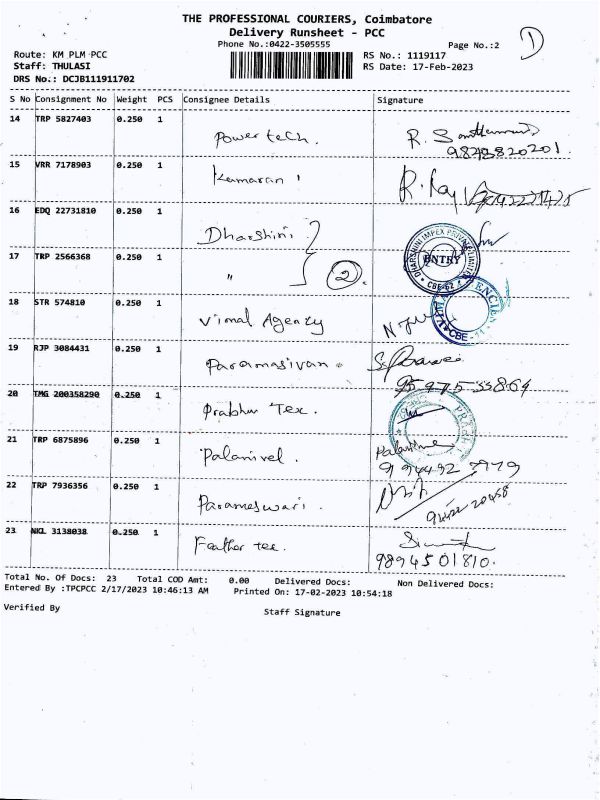 THE PROFESSIONAL COURIERS, Coimbatore
Delivery Runsheet - PCC
Phone No.:0422-3505555
Page No.:2
1
Route: KM PLM PCC
RS No.: 1119117
Staff: THULASI
RS Date: 17-Feb-2023
DRS No.: DCJB111911702
S No Consignment No Weight PCS Consignee Details Signature
14 TRP 5827403 0.250 1 Power tech.
15 VRR 7178903 0.250 1 Kumaran
16 EDQ 22731810 0.250 1 Dharshini
DHARSHINI IMPEX PRIVATE LIMITED
ENTRY
17 TRP 2566368 0.250 1 " 2
18 STR 574810 0.250 1 Vimal Agenzy
19 RJP 3084431 0.250 1 Paramasivan
20 TMG 200358290 0.250 1 Prabhu Tex.
21 TRP 6875896 0.250 1 Palanivel.
22 TRP 7936356 0.250 1 Parameswari.
23 NKL 3138038 0.250 1 Feather tex. 9894501810.
Total No. Of Docs: 23 Total COD Amt: 0.00 Delivered Docs: Non Delivered Docs:
Entered By :TPCPCC 2/17/2023 10:46:13 AM Printed On: 17-02-2023 10:54:18
Verified By Staff Signature